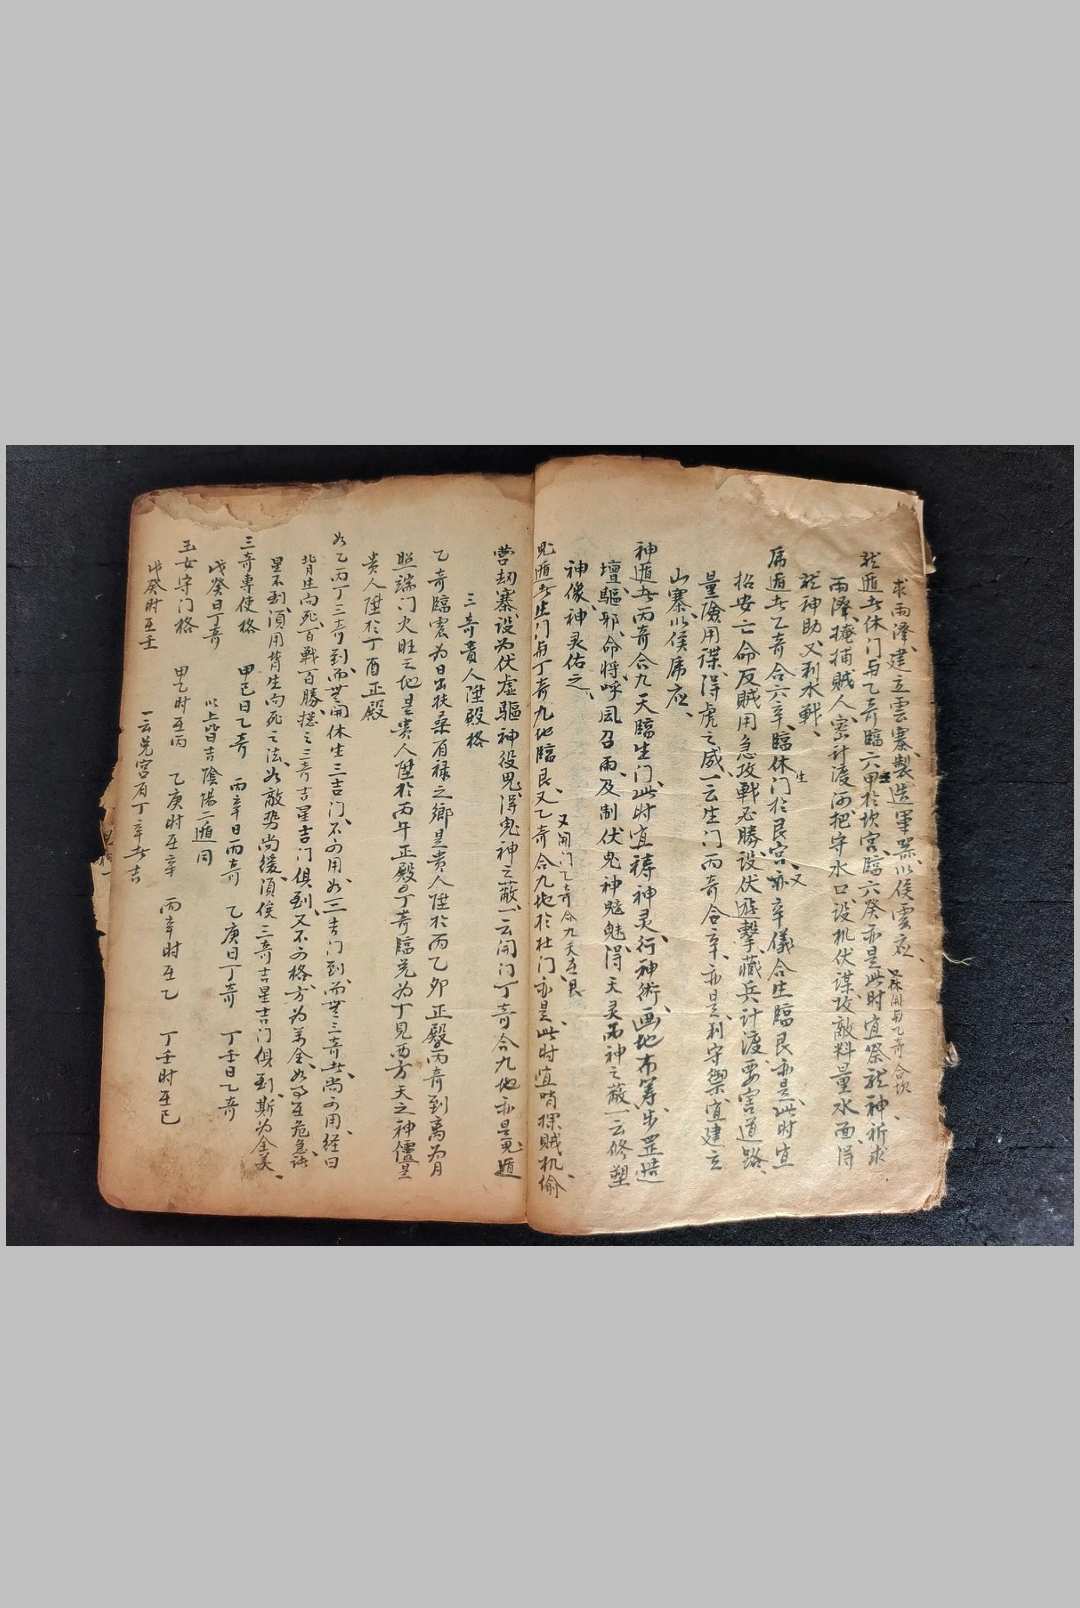 求雨澤、建立雲寨製造軍器以侯雲應、
又休開与乙奇合坎
龍遁者休门与乙奇臨六甲於坎宫、臨六癸亦是、此时宜祭龍神、祈求
雨澤、掩捕賊人、密计渡河把守水口、设机伏謀、攻敵料量水面、得
龍神助、又利水戰、
虎遁者乙奇合六辛、臨休门於艮宫、亦辛儀合生臨艮亦是、此时宜
生 又
招安亡命反賊、用急攻戰必勝、设伏遊擊、藏兵计渡要害道路、
量險用謀、得虎之威、一云生门丙奇合辛、亦是、利守禦宜建立
山寨以侯虎应、
神遁者丙奇合九天臨生门、此时宜祷神灵、行神術、画地布筹、步罡造
壇、驅邪、命将、呼風召雨、及制伏鬼神魃魅、得天灵而神之蔽一云修塑
神像、神灵佑之、
又開门乙奇合九天在艮
鬼遁者生门与丁奇九地臨艮、又乙奇合九地於杜门、亦是、此时宜哨探賊机、偷
营劫寨、设为伏虚驅神役鬼、得鬼神之蔽、一云開门丁奇合九地亦是鬼遁
三奇貴人陞殿格
乙奇臨震为日出扶桑有禄之鄉是贵人陞於丙乙卯正殿、丙奇到离为月
照端门火旺之地是贵人陞於丙午正殿、丁奇臨兑为丁見西方天之神僊是
贵人陞於丁酉正殿
如乙丙丁三奇到、而無開休生三吉门、不可用、如三吉门到、而無三奇者、尚可用、经曰
背生向死、百戰百勝、揔之三奇吉星吉门俱到、又不可格、方为萬全、如事在危急、諸
星不到、須用背生向死之法、如敵势尚缓、須侯三奇吉星吉门俱到、斯为全美、
三奇專使格 甲己日乙奇 丙辛日丙奇 乙庚日丁奇 丁壬日乙奇
戊癸日丁奇 以上皆吉陰陽二遁同
玉女守门格 甲乙时在丙 乙庚时在辛 丙辛时在乙 丁壬时在己
戊癸时在壬
一云兑宫有丁辛者吉